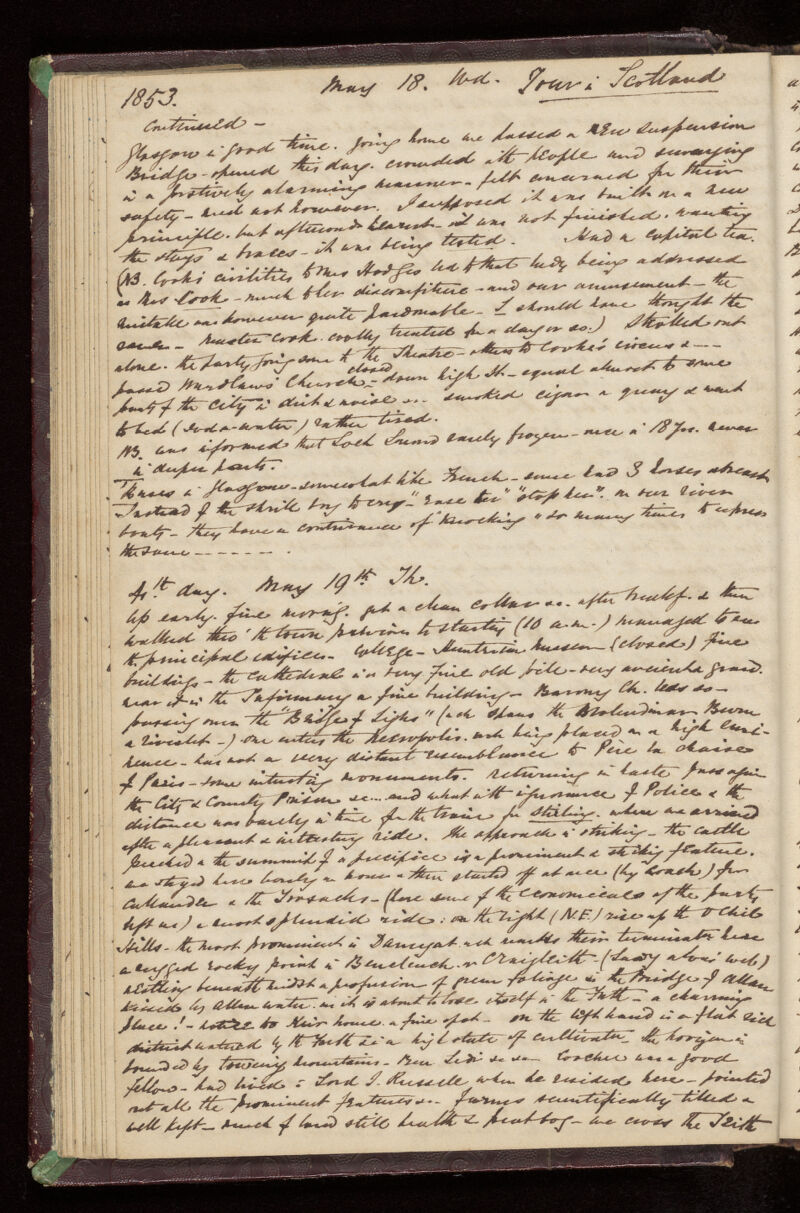 1853. May 18. Wd. Tour in Scotland
Continued -
Glasgow in good time. going home we passed a new suspension
Bridge - opened this day. crowded with people and swaying
in a positively alarming manner - felt concerned for their
safety - need not however. I supposed it was built on a new
principle. but afterwards learnt - it was not finished. wanting
the stays & braces - it was being tested. Had a capital tea.
(NB. Cook's civilities to Mrs Hodges led to that lady being addressed
as Mrs Cook - much to her discomfiture - and our amusement - the
mistake was however quite pardonable - I should have thought the
same - Master Cook. coolly treated for a day or so.) Strolled out
alone. the party going some to the Theatre - others to Cooke's circus &---
passed Wardlaw's Church - closed - down high St. - equal almost to some
parts of the City in dirt & noise &c. smoked cigar on quay & went
to bed (soda-water) rather tired.
NB. was informed that Loch Lomond rarely frozen - once in 18 yrs. never
in deeper parts.
Buses in Glasgow - somewhat like French - some had 3 horses abreast
Instead of the shrill boy to cry - "ease her" "stop her". on our river
boats - they have a contrivance of "knocking" so many times to express
the same - - - - - - -
4th day. May 19th Th.
Up early. fine morng. got a clean collar &c. after breakf. & then
walked thro' the town previous to starting (10 a.m.) managed to see
the principal edifices - College - Hunterian Museum (closed) fine
buildings - the Cathedral is a very fine old pile - very ancient & grand.
near it is the Infirmary a fine building - Barony Ch. less so -
passing over the "Bridge of Sighs" (wch spans the Molendinar Burn
a rivulet -) one enters the Necropolis. wch being placed on a high emi-
nence - has not a very distant resemblance to Père la Chaise
of Paris - some interesting monuments. returning in haste pass again
the City & County Prison &c... and what with ignorance of Police & the
distance was barely in time for the train for Stirling. where we arrived
after a pleasant & interesting ride. the approach is striking - the castle
perched on the summit of a precipice is a prominent & striking feature.
we stayed here barely an hour & then started off at once (by coach) for
Callander & the Trosachs - (here some of the economicals of the party
left us) a most splendid ride: on the right (NE) rise up the Ochil
Hills - the most prominent is Damyat wch marks their termination here
a rugged rocky point is Craigleith - (
nestling beneath midst a profusion of green foliage is the Bridge of Allan
kissed by Allan water. as it is about to lose itself in the Forth - a charming
place! - Keir house. a fine spot - on the left hand is a flat rich
district watered by the Forth & in a high state of cultivation the horizon is
bounded by towering mountains - Ben Ledi &c &c - Coachee was a good
fellow - had lived with Lord J. Russell when he resided here - pointed
out all the prominent features &c. farms scientifically tilled &
well kept - much of land still heath & peat bog - we cross the Teith